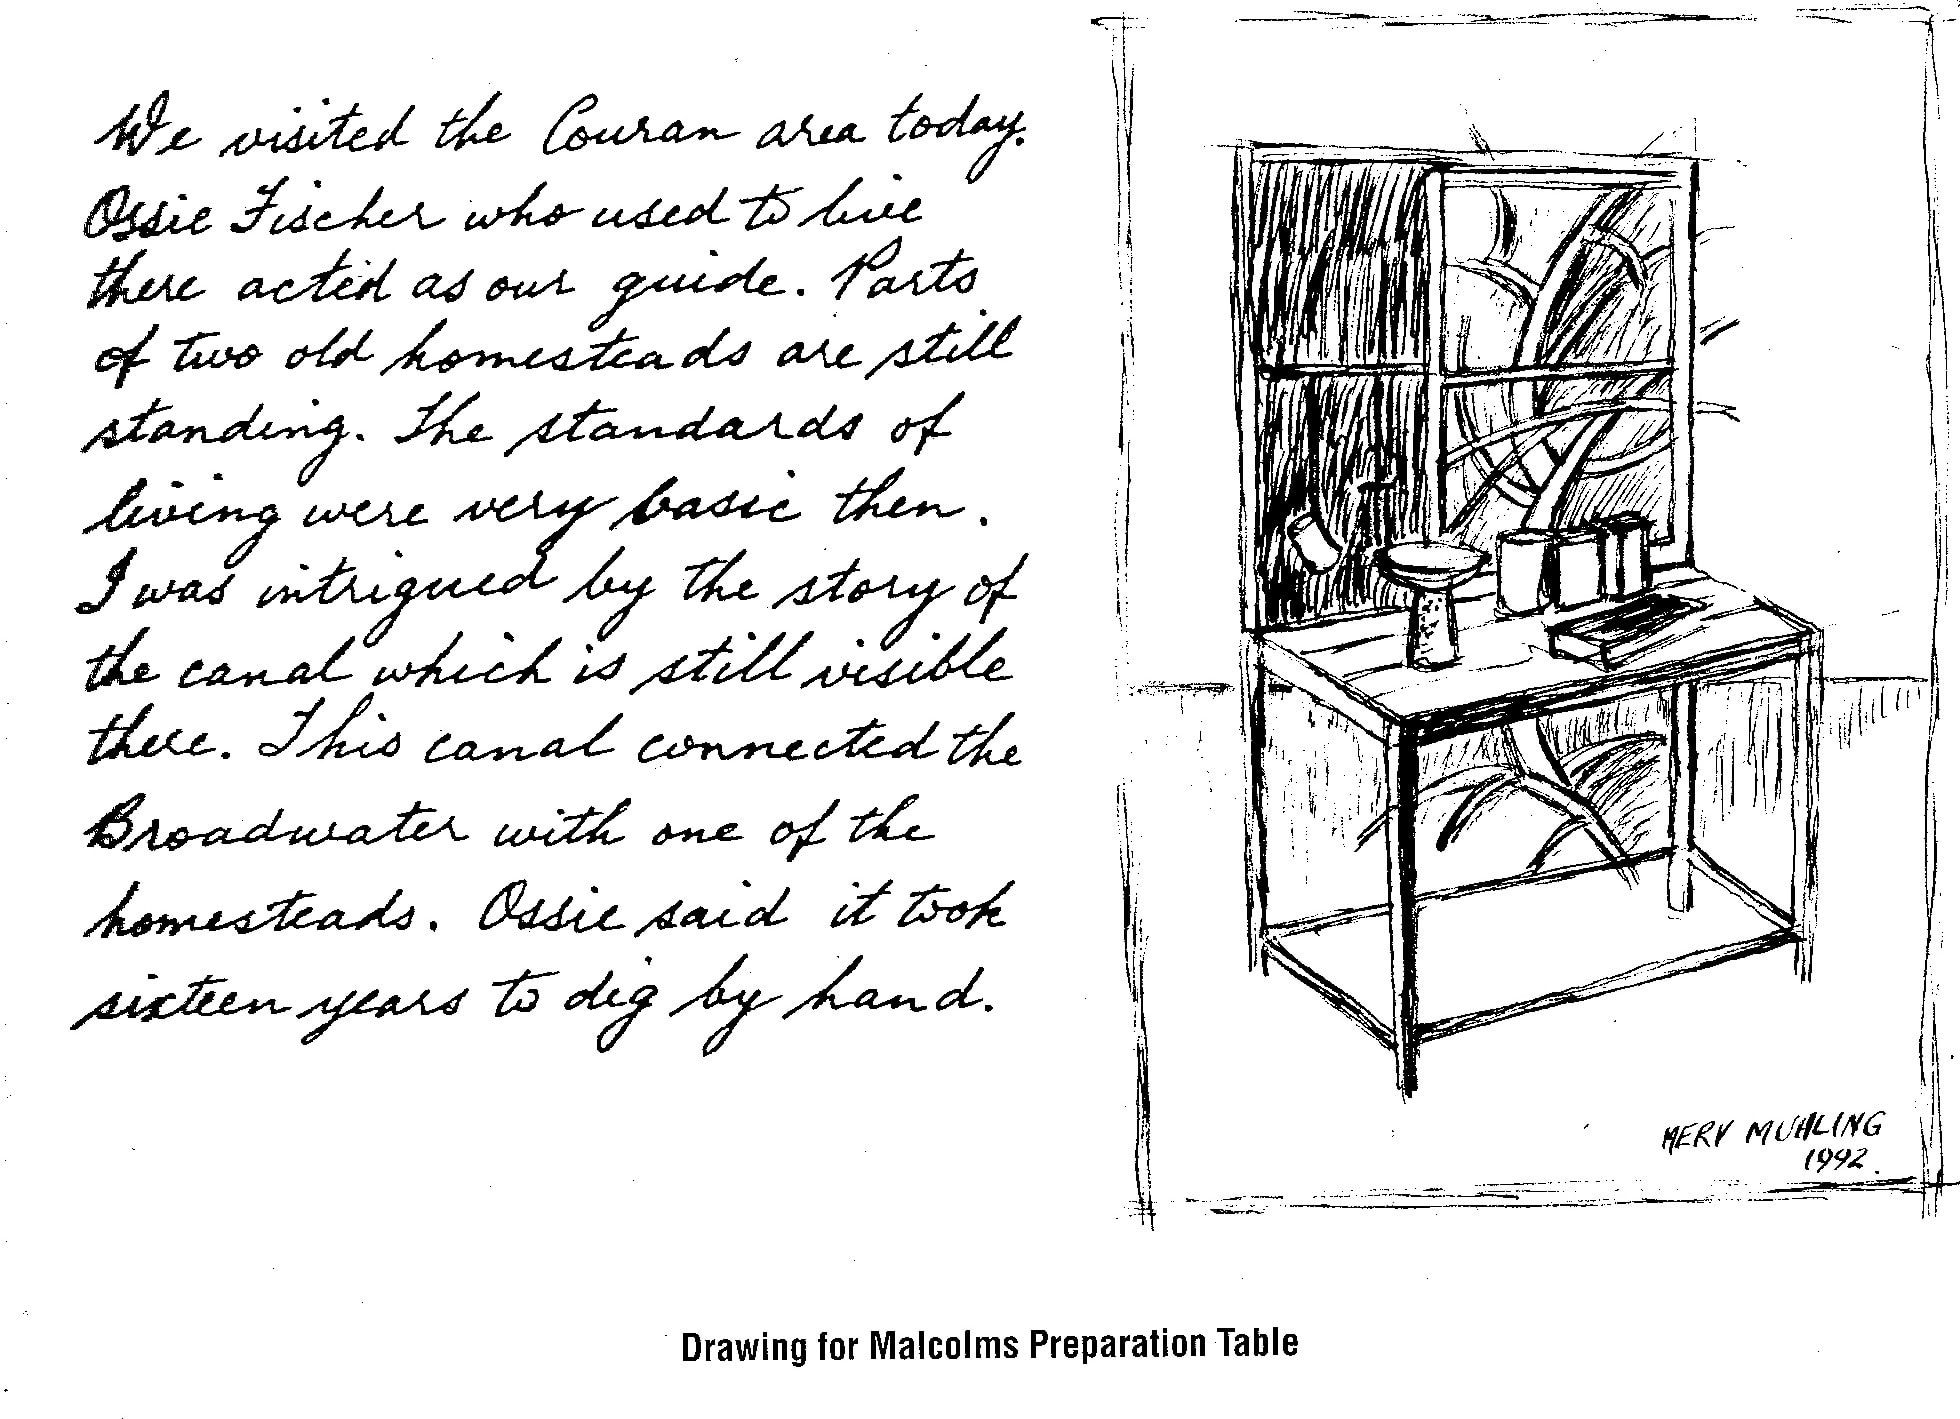 We visited the Couran area today.
Ossie Fischer who used to live
there acted as our guide. Parts
of two old homesteads are still
standing. The standards of
living were very basic then.
I was intrigued by the story of
the canal which is still visible
there. This canal connected the
Broadwater with one of the
homesteads. Ossie said it took
sixteen years to dig by hand.
MERV MUHLING
1992.
Drawing for Malcolms Preparation Table